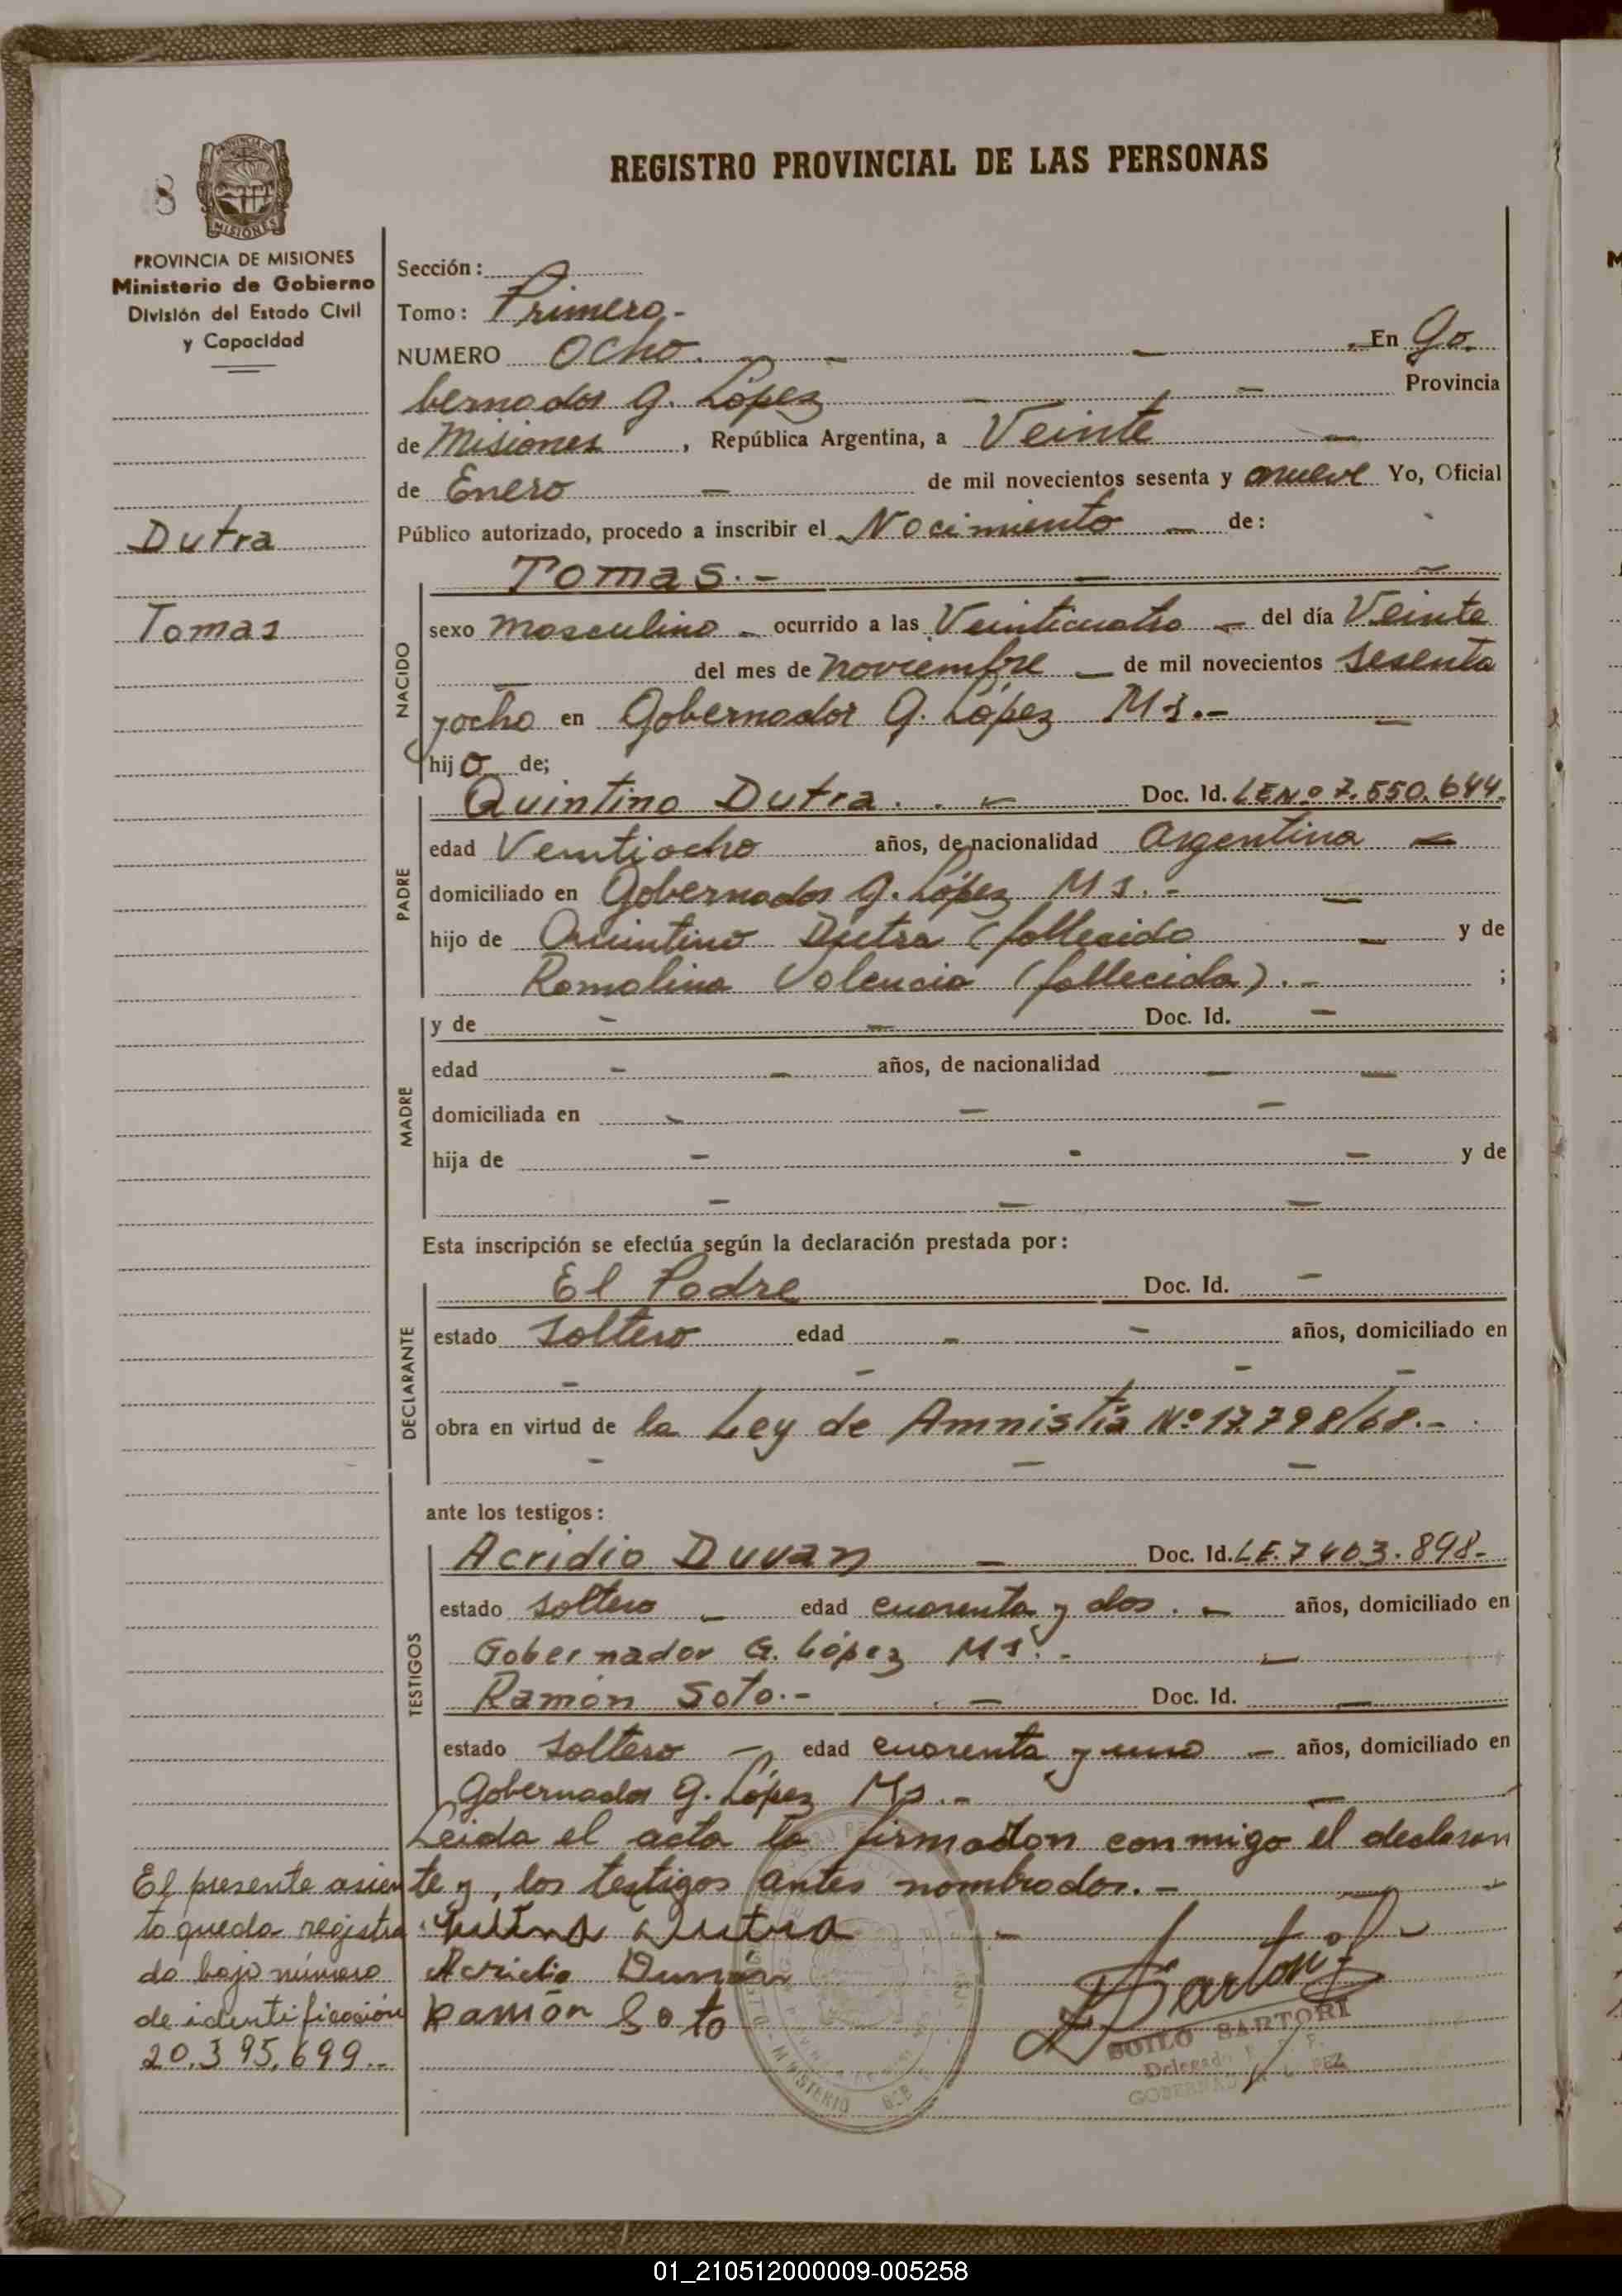 REGISTRO PROVINCIAL DE LAS PERSONAS
8
MISIONES
PROVINCIA DE MISIONES
Ministerio de Gobierno
División del Estado Civil
y Capacidad
Dutra
Tomas
Sección:
Tomo: Primero.-
NUMERO Ocho. - - - En Go.
bernador G. López - - Provincia
de Misiones, República Argentina, a Veinte -
de Enero - de mil novecientos sesenta y nueve Yo, Oficial
Público autorizado, procedo a inscribir el Nacimiento - de:
Tomas.- - -
NACIDO
sexo masculino - ocurrido a las Veinticuatro - del día Veinte
- del mes de noviembre - de mil novecientos sesenta
y ocho en Gobernador G. López Ms.- -
hijo de;
PADRE
Quintino Dutra. . - Doc. Id. LE Nº 7.550.644.
edad Veintiocho años, de nacionalidad Argentina -
domiciliado en Gobernador G. López Ms.- -
hijo de Quintino Dutra (fallecido - y de
Romalina Valencia (fallecida).- ;
MADRE
y de - - Doc. Id. -
edad - - años, de nacionalidad - -
domiciliada en - - -
hija de - - - y de
- - -
Esta inscripción se efectúa según la declaración prestada por:
DECLARANTE
El Padre Doc. Id. -
estado Soltero edad - - años, domiciliado en
- - - -
obra en virtud de la Ley de Amnistía Nº 17.798/68.-
- - -
ante los testigos:
TESTIGOS
Acridio Duvan - Doc. Id. LE. 7403.898-
estado Soltero - edad cuarenta y dos. - años, domiciliado en
Gobernador G. López Ms.- -
Ramón Soto.- - Doc. Id. -
estado Soltero - edad cuarenta y uno - años, domiciliado en
Gobernador G. López Ms.- -
Leida el acta la firmaron conmigo el declaran
te y, los testigos antes nombrados.- -
Dutra
Acridio
Ramón Soto
El presente asien
to queda registra
do bajo número
de identificación
20.395.699.-
Sartori
SARTORI
Delegado
MINISTERIO
01_210512000009-005258